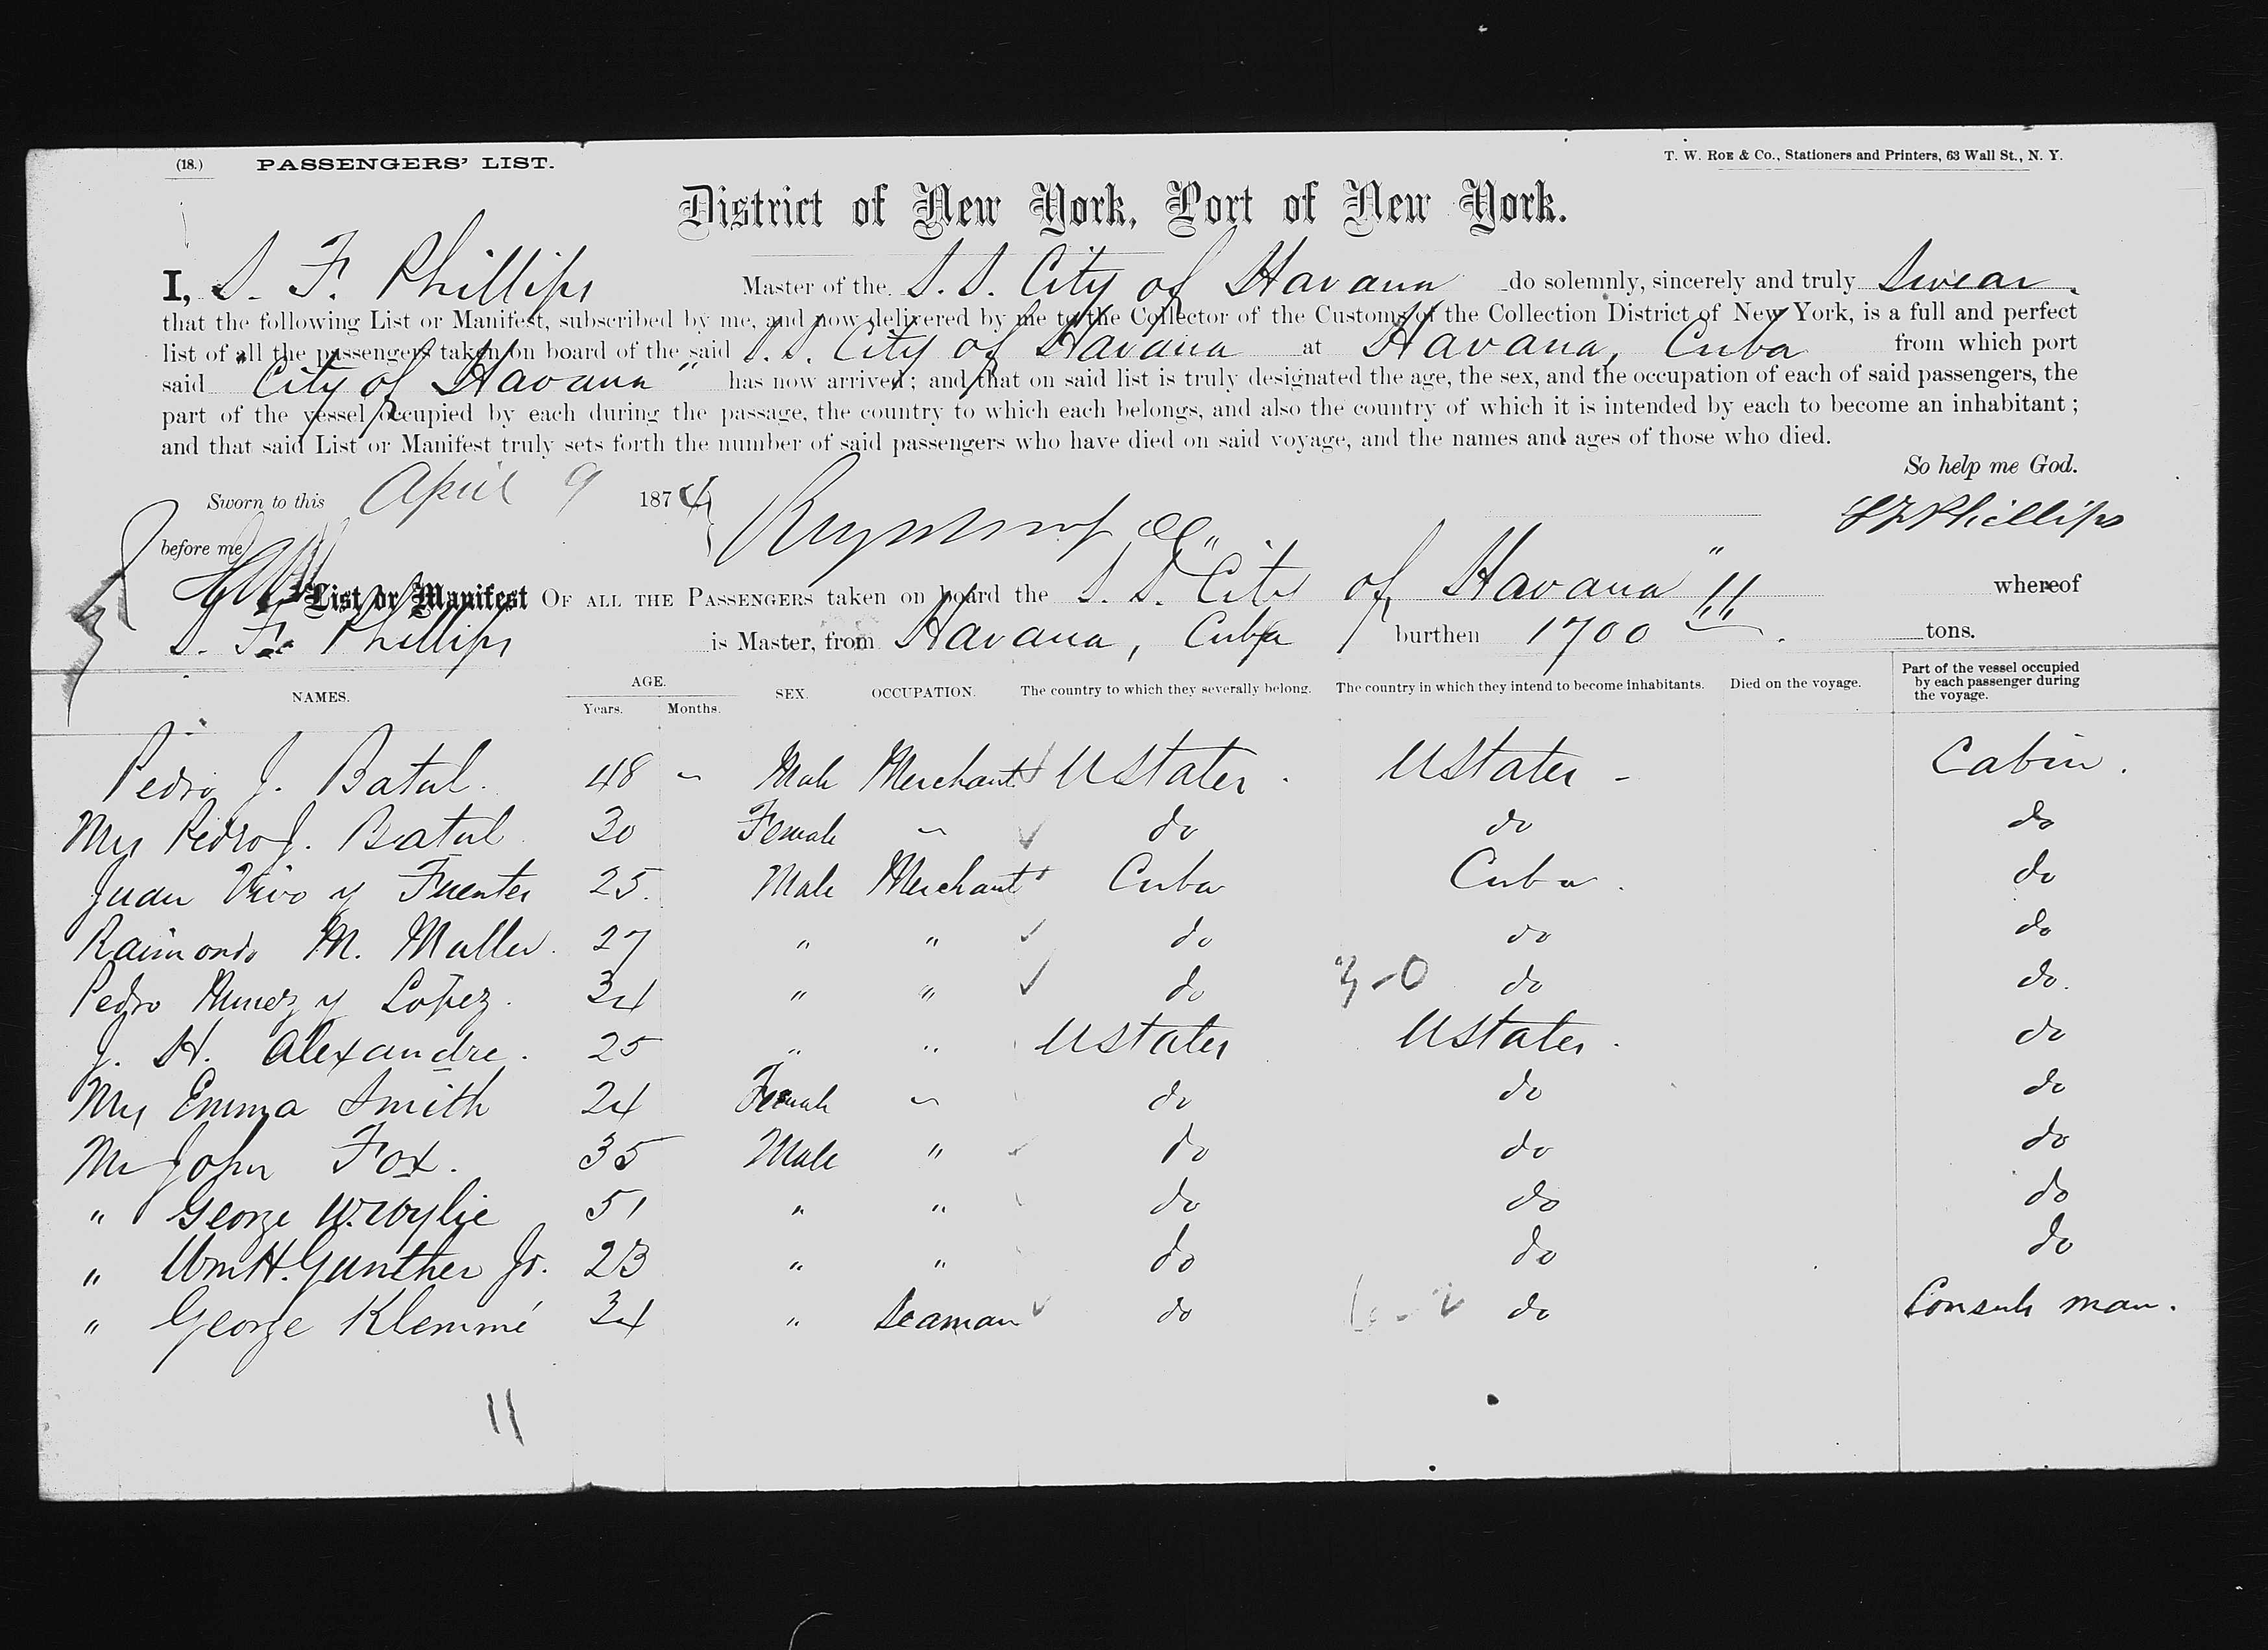 (18.) PASSENGERS' LIST. T. W. ROE & Co., Stationers and Printers, 63 Wall St., N. Y.
District of New York, Port of New York.
I, S. F. Phillips Master of the S. S. City of Havana do solemnly, sincerely and truly Swear
that the following List or Manifest, subscribed by me, and now delivered by me to the Collector of the Customs of the Collection District of New York, is a full and perfect
list of all the passengers taken on board of the said S. S. City of Havana at Havana, Cuba from which port
said "City of Havana" has now arrived; and that on said list is truly designated the age, the sex, and the occupation of each of said passengers, the
part of the vessel occupied by each during the passage, the country to which each belongs, and also the country of which it is intended by each to become an inhabitant;
and that said List or Manifest truly sets forth the number of said passengers who have died on said voyage, and the names and ages of those who died.
So help me God.
Sworn to this April 9 1874 S F Phillips
before me
List or Manifest OF ALL THE PASSENGERS taken on board the S. S. "City of Havana" whereof
S. F. Phillips is Master, from Havana, Cuba burthen 1700 tons.
NAMES. AGE. Years. Months. SEX. OCCUPATION. The country to which they severally belong. The country in which they intend to become inhabitants. Died on the voyage. Part of the vessel occupied by each passenger during the voyage.
Pedro J. Batul. 48 " Male Merchant UStates. UStates - Cabin.
Mrs Pedro J. Batul 30 Female " do do do
Juan Vivo y Fuentes 25. Male Merchant Cuba Cuba. do
Raimondo M. Muller. 27 " " do do do
Pedro Nunez y Lopez. 34 " " do do do.
J. H. Alexandre. 25 " " UStates UStates. do
Mrs Emma Smith 24 Female " do do do
Mr John Fox. 35 Male " do do do
" George W. Wylie 51 " " do do do
" Wm H. Gunther Jr. 23 " " do do do
" George Klemmé 34 " Seaman do do Consuls man.
11